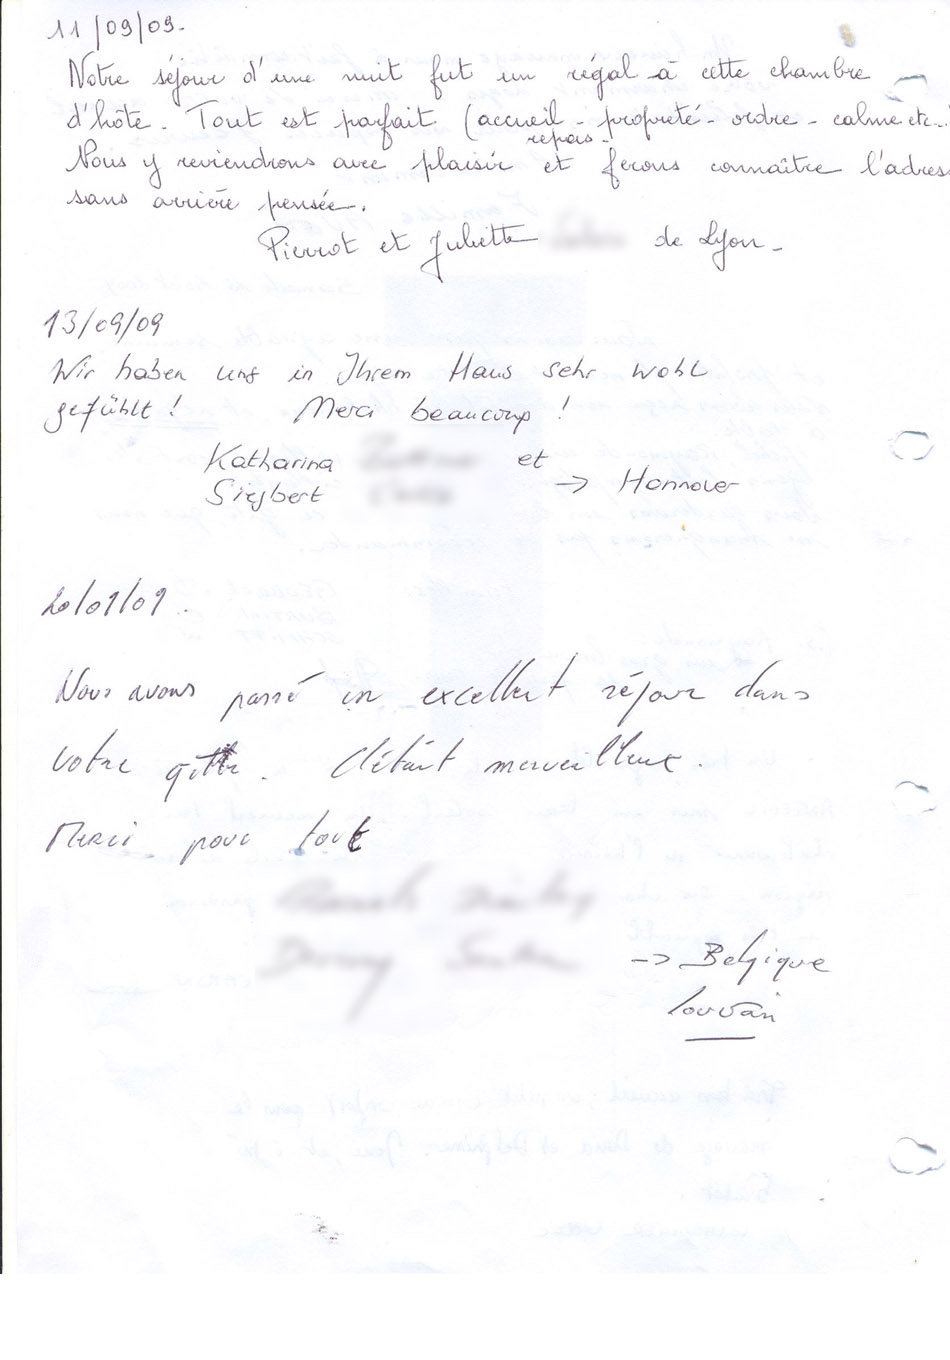 11/09/09.
Notre séjour d'une nuit fut un régal a cette chambre
d'hôte. Tout est parfait (accueil - propreté - ordre - calme etc..
repos.
Nous y reviendrons avec plaisir et ferons connaître l'adres
sans arrière pensée.
Pierrot et Juliette de Lyon.
13/09/09
Wir haben uns in Ihrem Haus sehr wohl
gefühlt! Merci beaucoup!
Katharina et
Siegbert -> Hannover
20/09/09.
Nous avons passé un excellent séjour dans
votre gîte. C'était merveilleux.
Merci pour tout
-> Belgique
Louvain